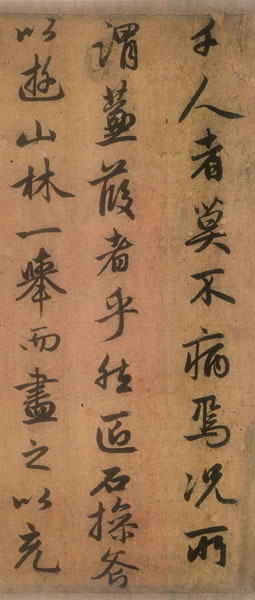 千人者莫不病焉況所
謂蒹葭者乎然匠石操斧
以遊山林一舉而盡之以充